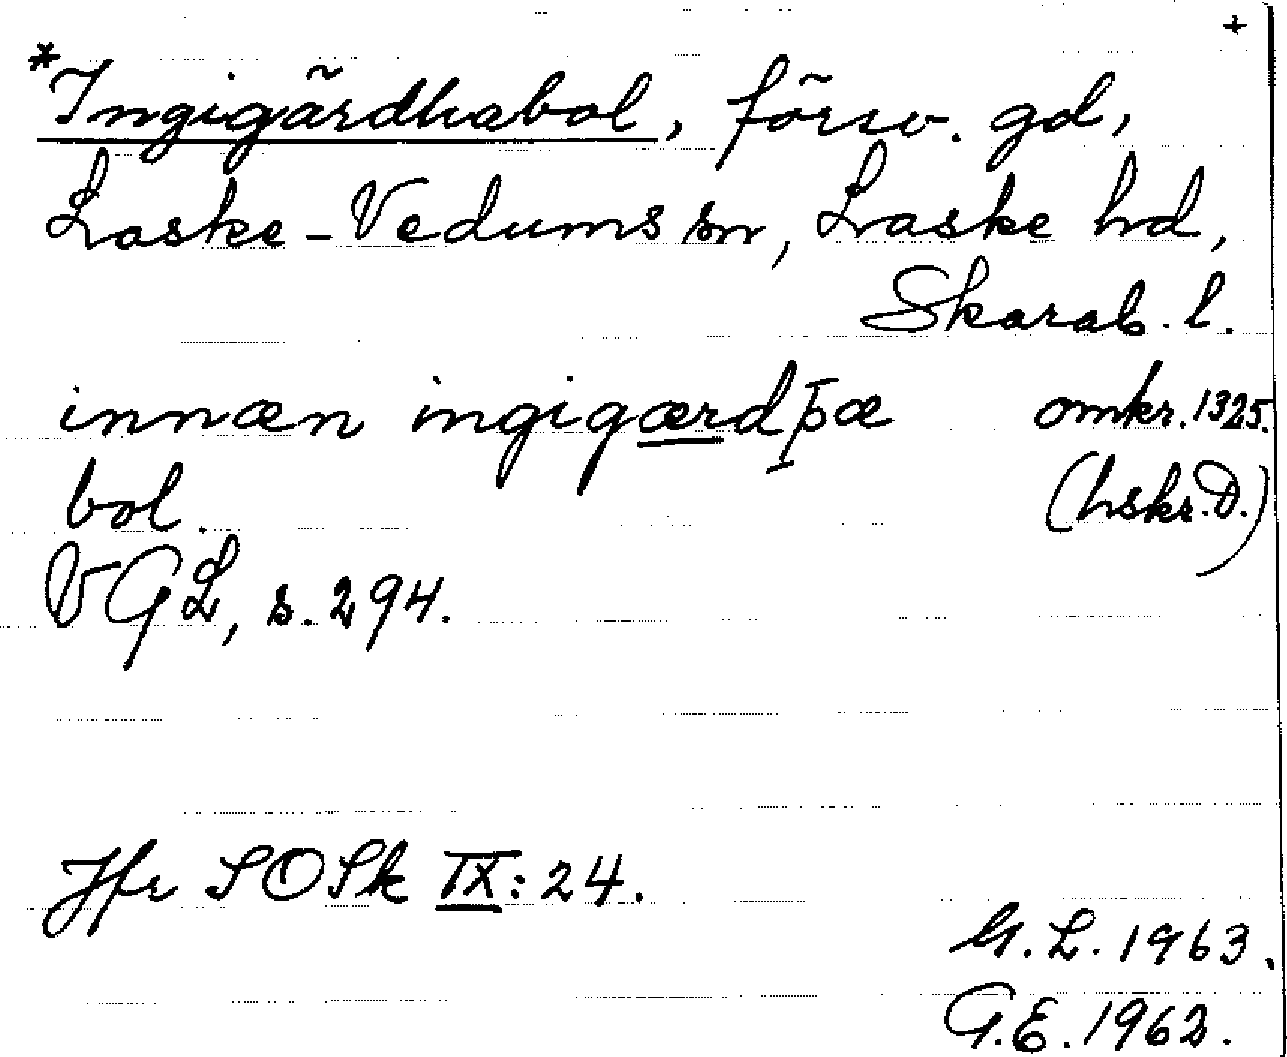 +
*Ingigärdhabol, försv. gd,
Laske-Vedums sn, Laske hd,
Skarab. l.
innæn ingigærdþæ omkr. 1325.
bol. (hskr. D.)
VGL, s. 294.
Jfr SOSk IX: 24.
G. L. 1963.
G. E. 1962.